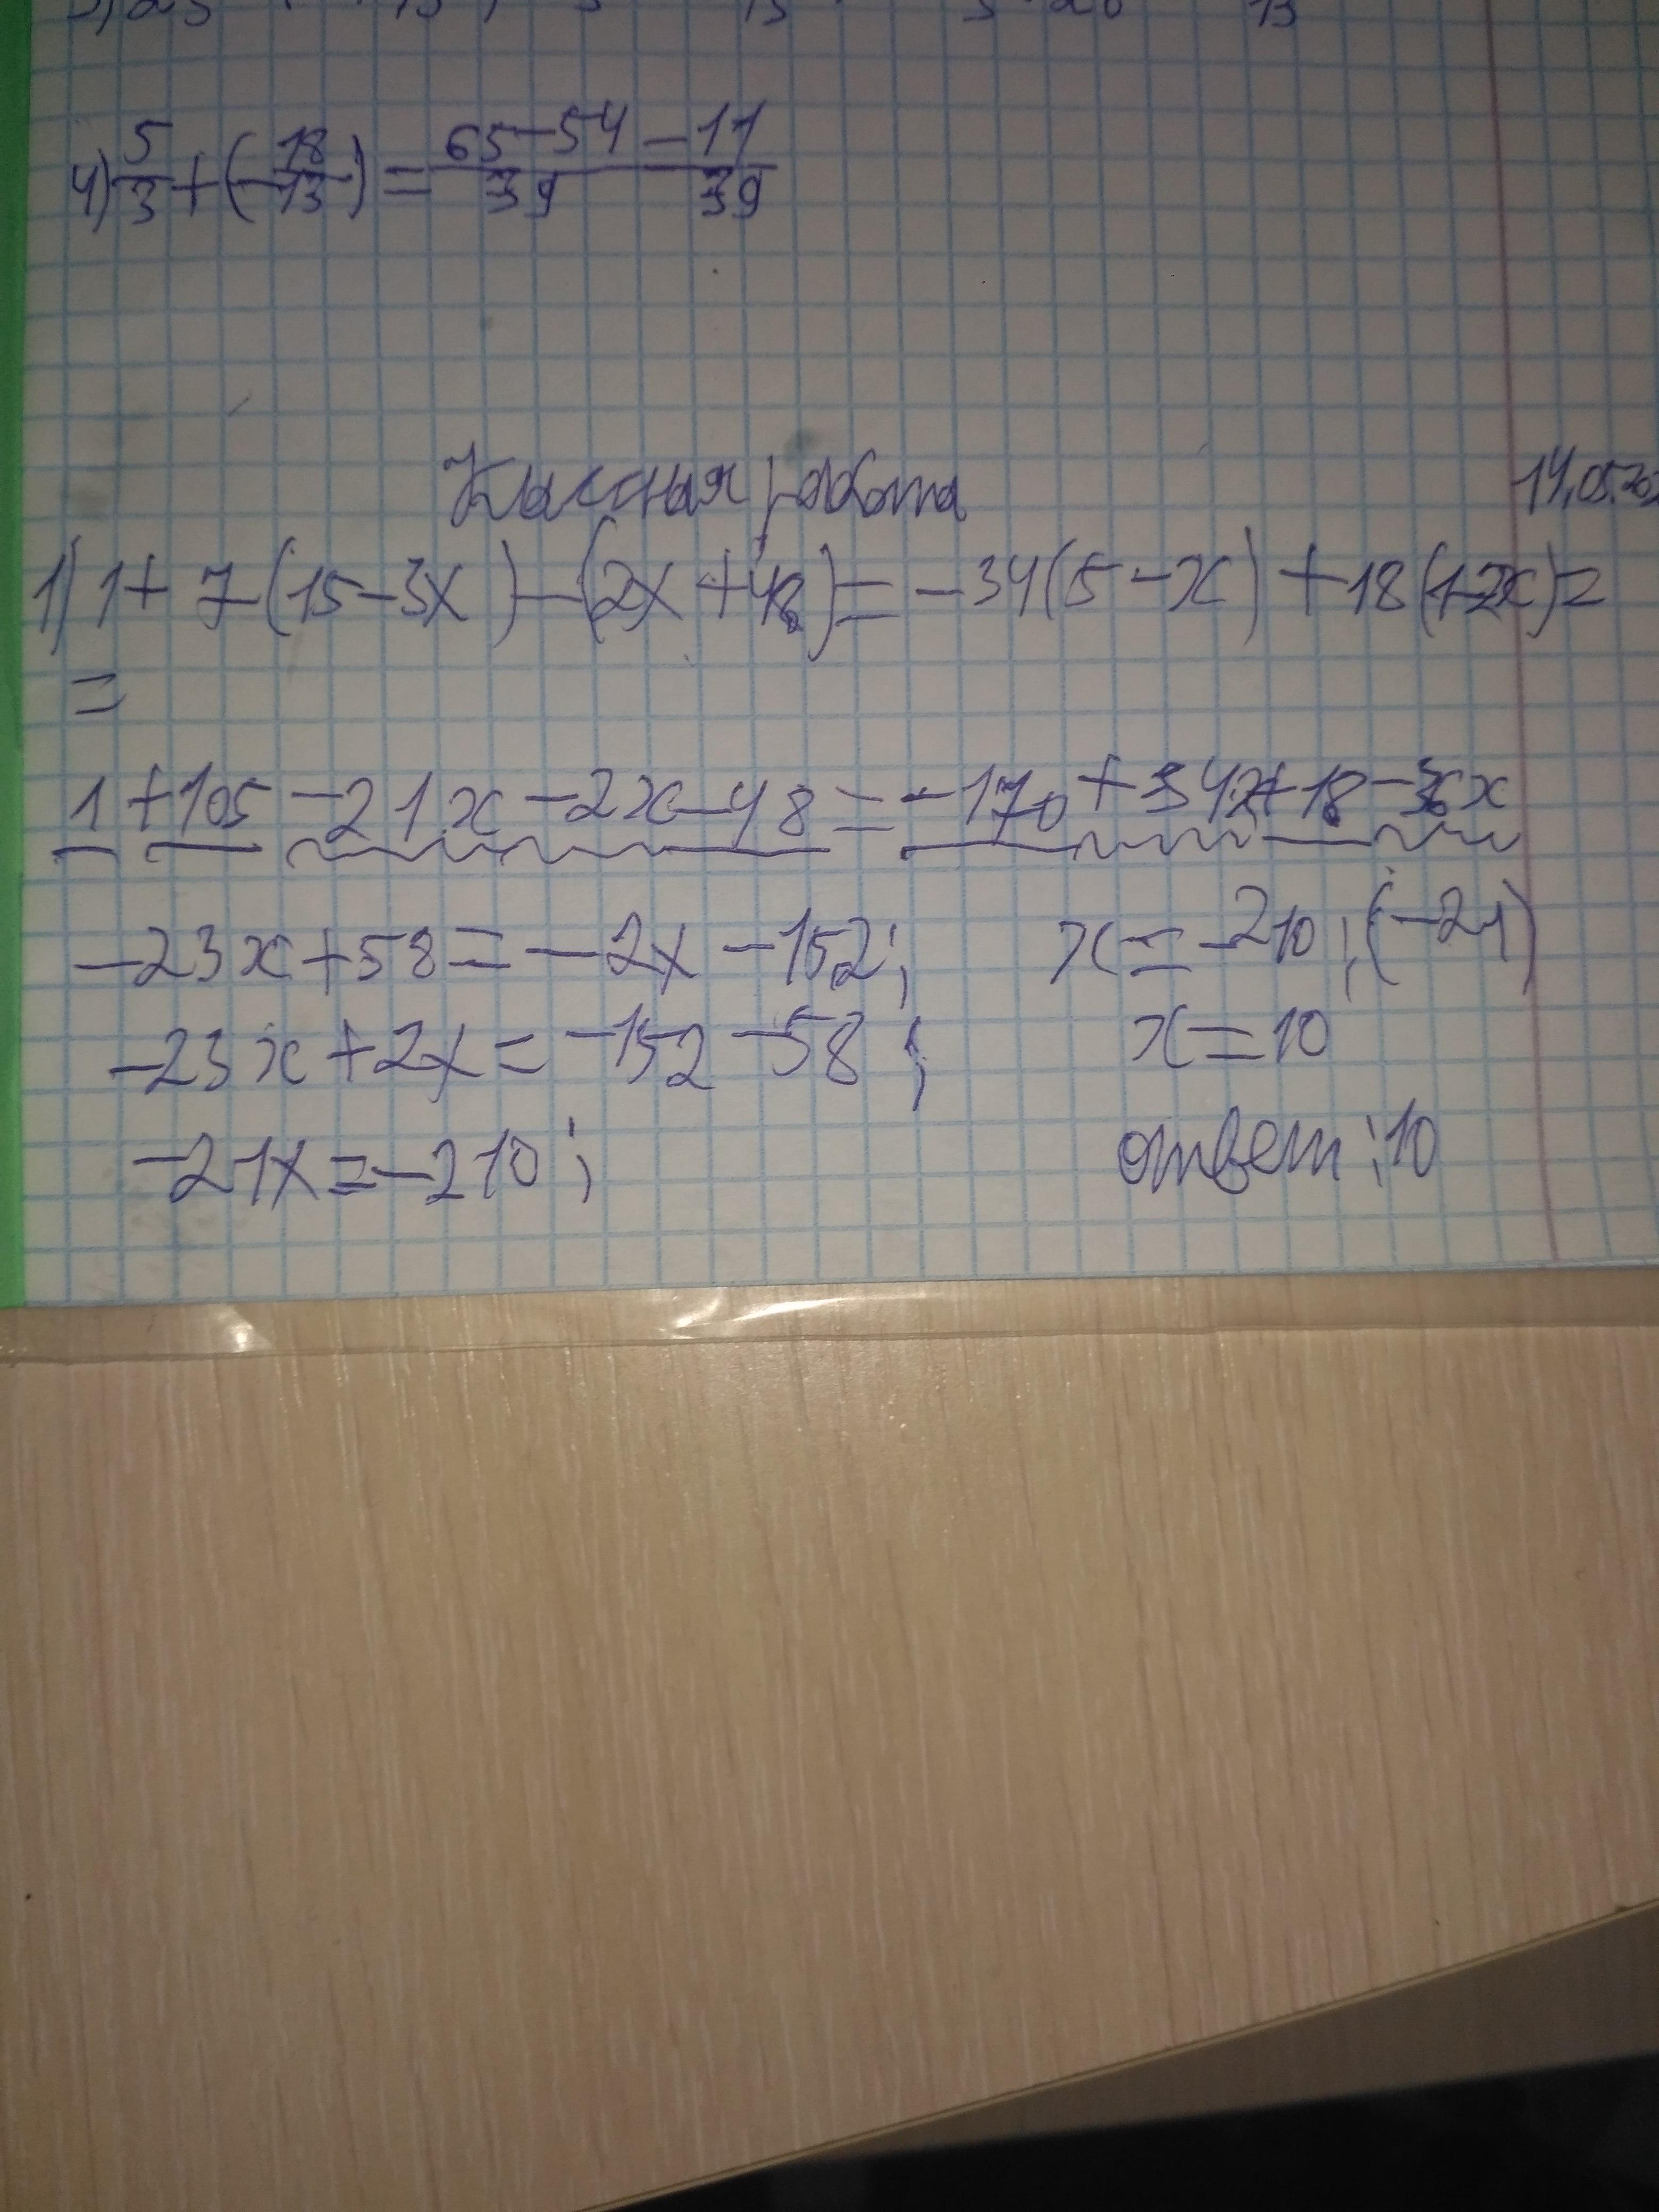 4) 5/3 + (-18/13) = 65-54/39 = 11/39
Классная работа 14.05.20
1) 1 + 7(15-3x) - (2x+48) = -34(5-x) + 18(1-2x) =
=
1 + 105 - 21x - 2x - 48 = -170 + 34x + 18 - 36x
-23x + 58 = -2x - 152; x = -210 : (-21)
-23x + 2x = -152 - 58; x = 10
-21x = -210; ответ: 10